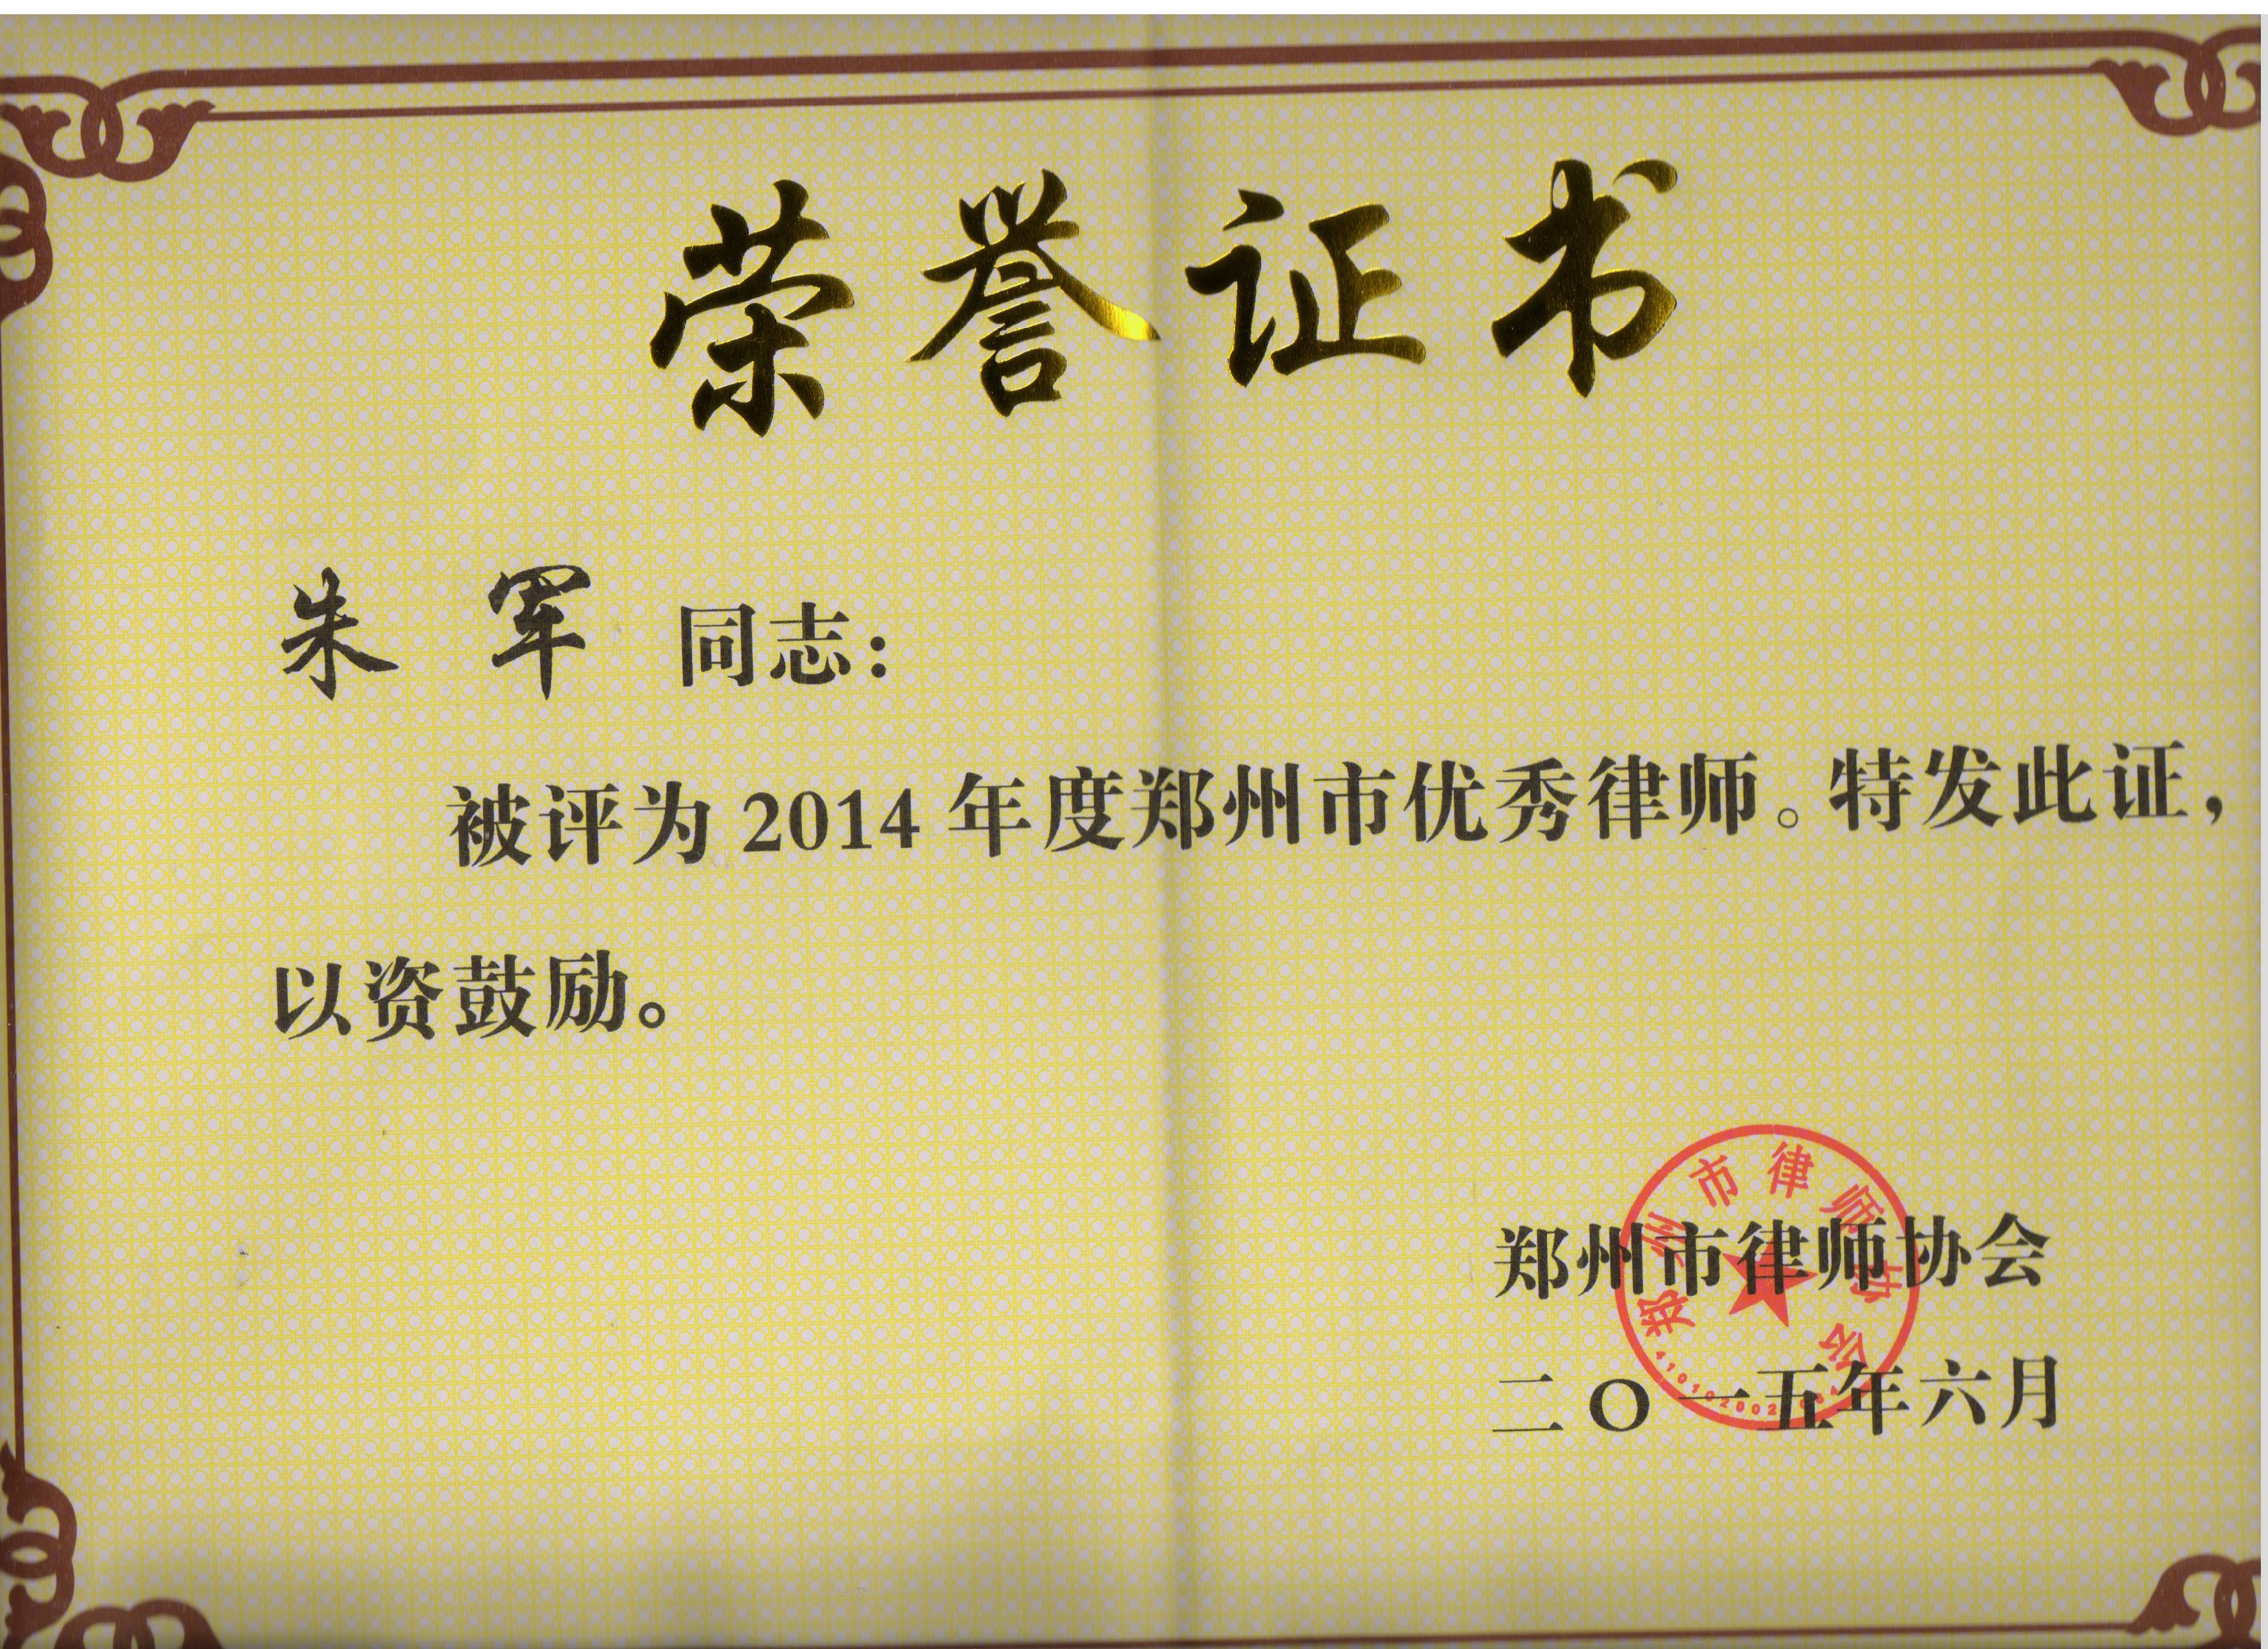 荣誉证书
朱 军 同志：
被评为 2014 年度郑州市优秀律师。特发此证，
以资鼓励。
郑州市律师协会
二〇一五年六月
郑州市律师协会